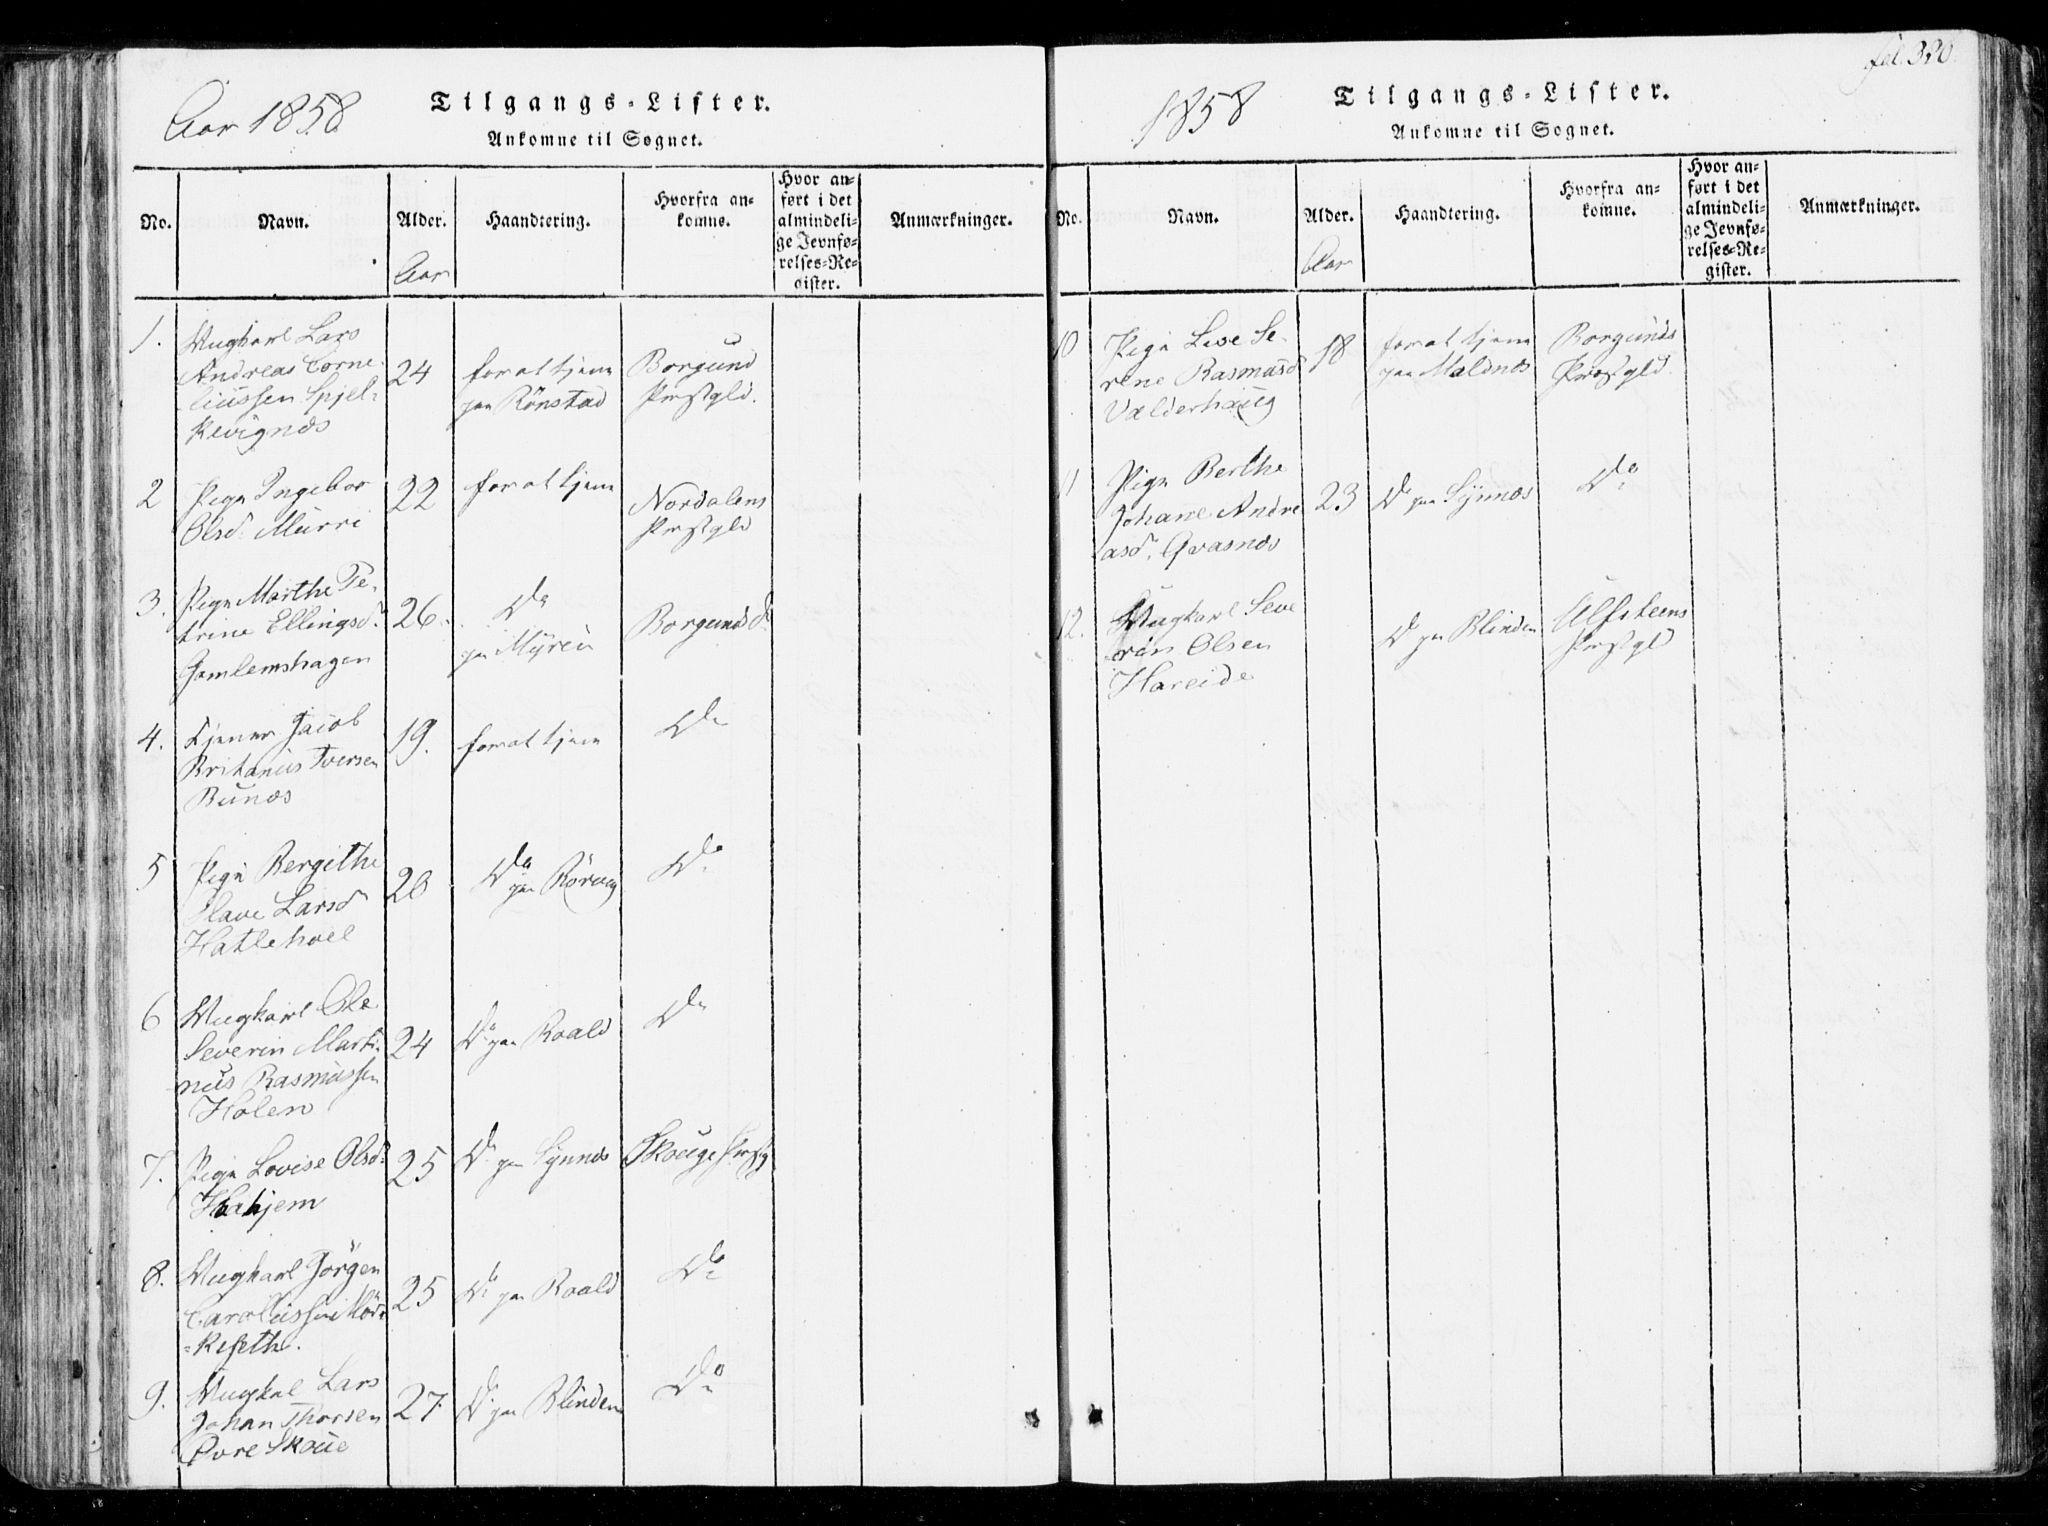 Aar 1858
Tilgangs-Lister.
Ankomne til Sognet.
No.
Navn.
Alder.
Aar
Haandtering.
Hvorfra an-
komne.
Hvor an-
ført i det
almindeli-
ge Jevnfø-
relses-Re-
gister.
Anmærkninger.
1.
Ungkarl Lars
Andreas Corne-
liussen Spjel-
kevignæs
24
for at tjene
paa Rönstad
Borgund
Præstgld.
2
Pige Ingebor
Olsd. Murri
22
for at tjene
Nordalens
Præstgld
3.
Pige Marthe Pe-
trine Ellingsd.
Gamlemshagen
26.
Do
paa Myren
Borgunds
4.
Tjener Jacob
Britanus Iversen
Bunæs
19.
for at tjene
Do
5
Pige Bergithe
Olave Larsd
Hatlehoel
20
Do
paa Rörvig
Do
6
Ungkarl Ole
Severin Marti-
nus Rasmussen
Holen
24
Do paa Roald
Do
7.
Pige Lovise Olsd.
Hahjem
25
Do paa Synnæs
Skouge Præstg
8.
Ungkarl Jörgen
Caroliussen Mör-
-keseth.
25
Do paa Roald
Do
9.
Ungkal Lars
Johan Thorsen
Övre Skoue
27.
Do paa Blindem
Do
fol. 320.
1858
Tilgangs-Lister.
Ankomne til Sognet.
No.
Navn.
Alder.
Aar
Haandtering.
Hvorfra an-
komne.
Hvor an-
ført i det
almindeli-
ge Jevnfø-
relses-Re-
gister.
Anmærkninger.
10
Pige Live Se-
rene Rasmusd
Valderhaug
18
for at tjene
paa Maldnæs
Borgunds
Præstgld.
11
Pige Berthe
Johane Andre
asd. Gvasnæs
23
Do paa Synnæs
Do
12.
Ungkarl Seve
rin Olsen
Hareide
Do paa Blinden
Ulfsteens
Præstgld